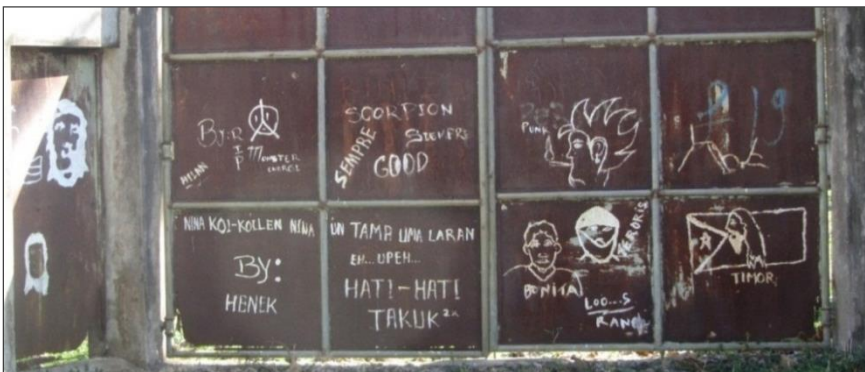 By: R
I
P
MONSTER
ENERGI
SCORPION
SIEVERS
SEMPRE
GOOD
PUNK
NINA KOI-KOLLEN NINA
By:
HENEK
UN TAMA UMA LARAN
EH... UPEH...
HATI-HATI
TAKUK 2x
BONITA
LOO...S
RANG
TIMOR